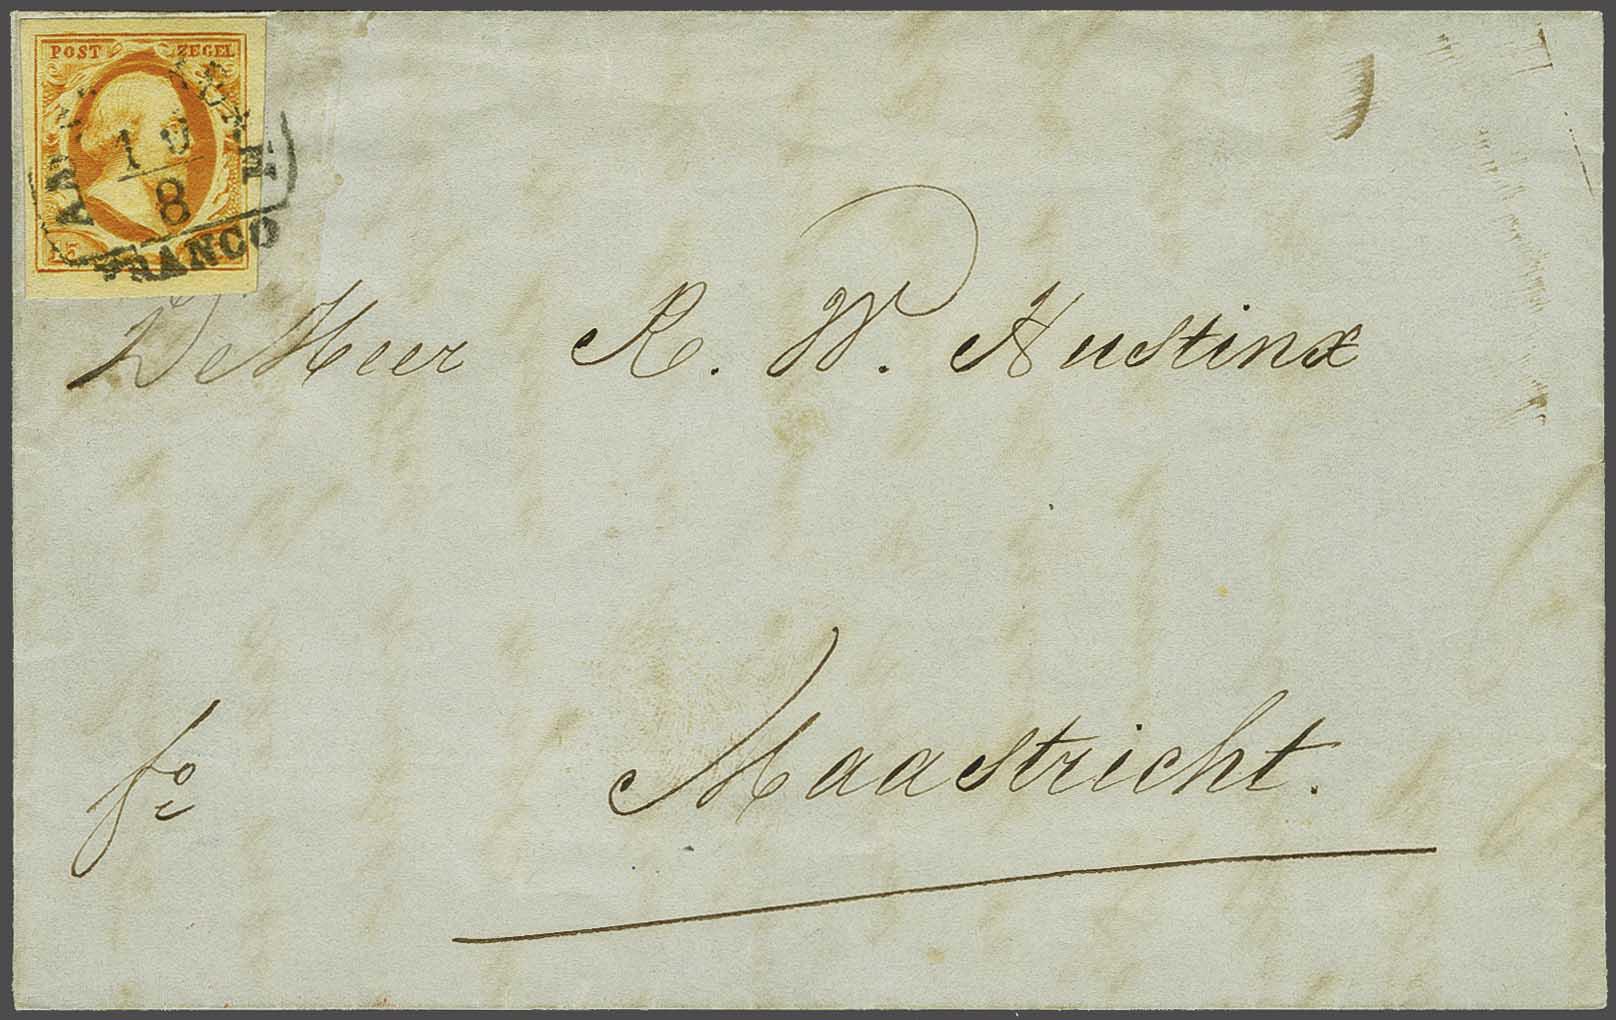 POST ZEGEL
10
8
FRANCO
De Heer R. W. Nustinx
fo
Maastricht.